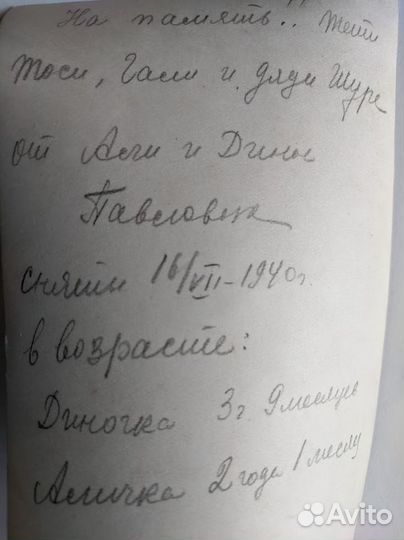 На память!! Тети
Тоси, Гали и дяди Шуре
от Аси и Дины
Павловск
сняты 16/VII-1940г.
в возрасте:
Диночка 3г. 9 месяцев
Асичка 2 года 1 месяц
Avito